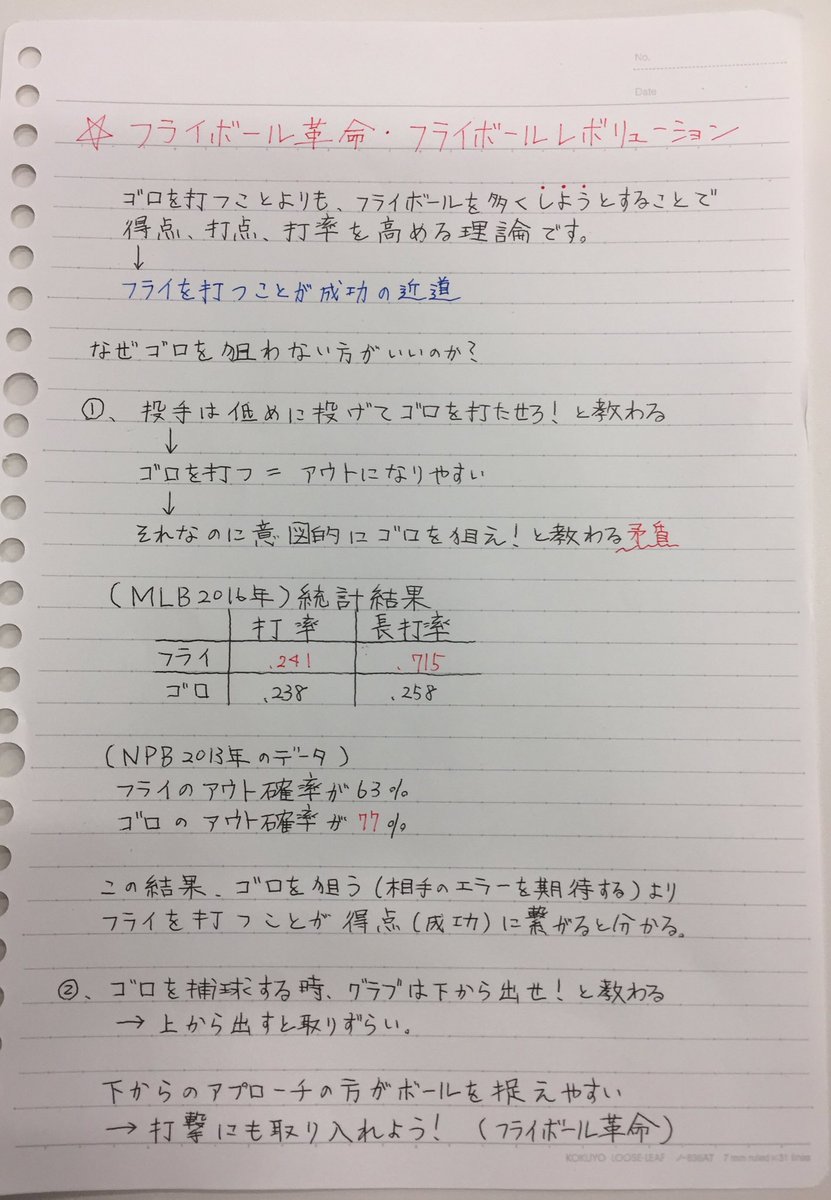 No.
Date
☆ フライボール革命・フライボールレボリューション
ゴロを打つことよりも、フライボールを多くしようとすることで
得点、打点、打率を高める理論です。
↓
フライを打つことが成功の近道
なぜゴロを狙わない方がいいのか?
①、投手は低めに投げてゴロを打たせろ!と教わる
↓
ゴロを打つ = アウトになりやすい
↓
それなのに意図的にゴロを狙え!と教わる矛盾
(MLB2016年)統計結果
打率 長打率
フライ .241 .715
ゴロ .238 .258
(NPB2013年のデータ)
フライのアウト確率が63%
ゴロのアウト確率が77%
この結果、ゴロを狙う(相手のエラーを期待する)より
フライを打つことが得点(成功)に繋がると分かる。
②、ゴロを捕球する時、グラブは下から出せ!と教わる
→ 上から出すと取りずらい。
下からのアプローチの方がボールを捉えやすい
→ 打撃にも取り入れよう! (フライボール革命)
KOKUYO LOOSE-LEAF ノ-836AT 7 mm ruled×31 lines